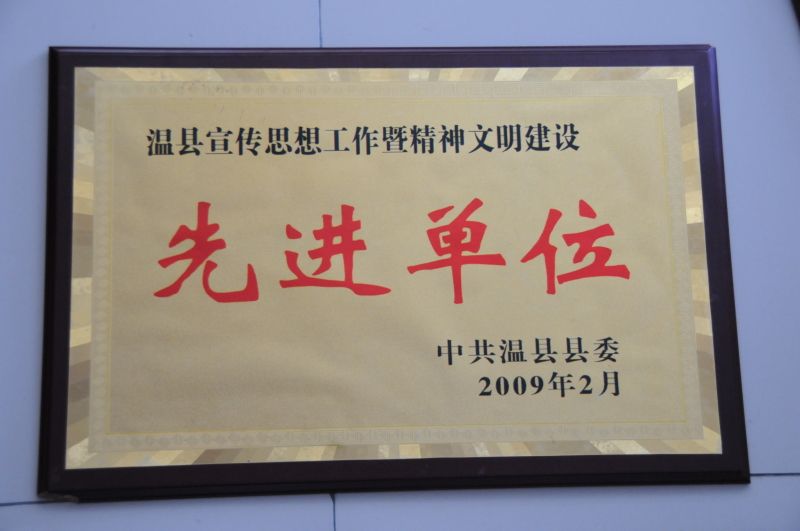 温县宣传思想工作暨精神文明建设
先进单位
中共温县县委
2009年2月